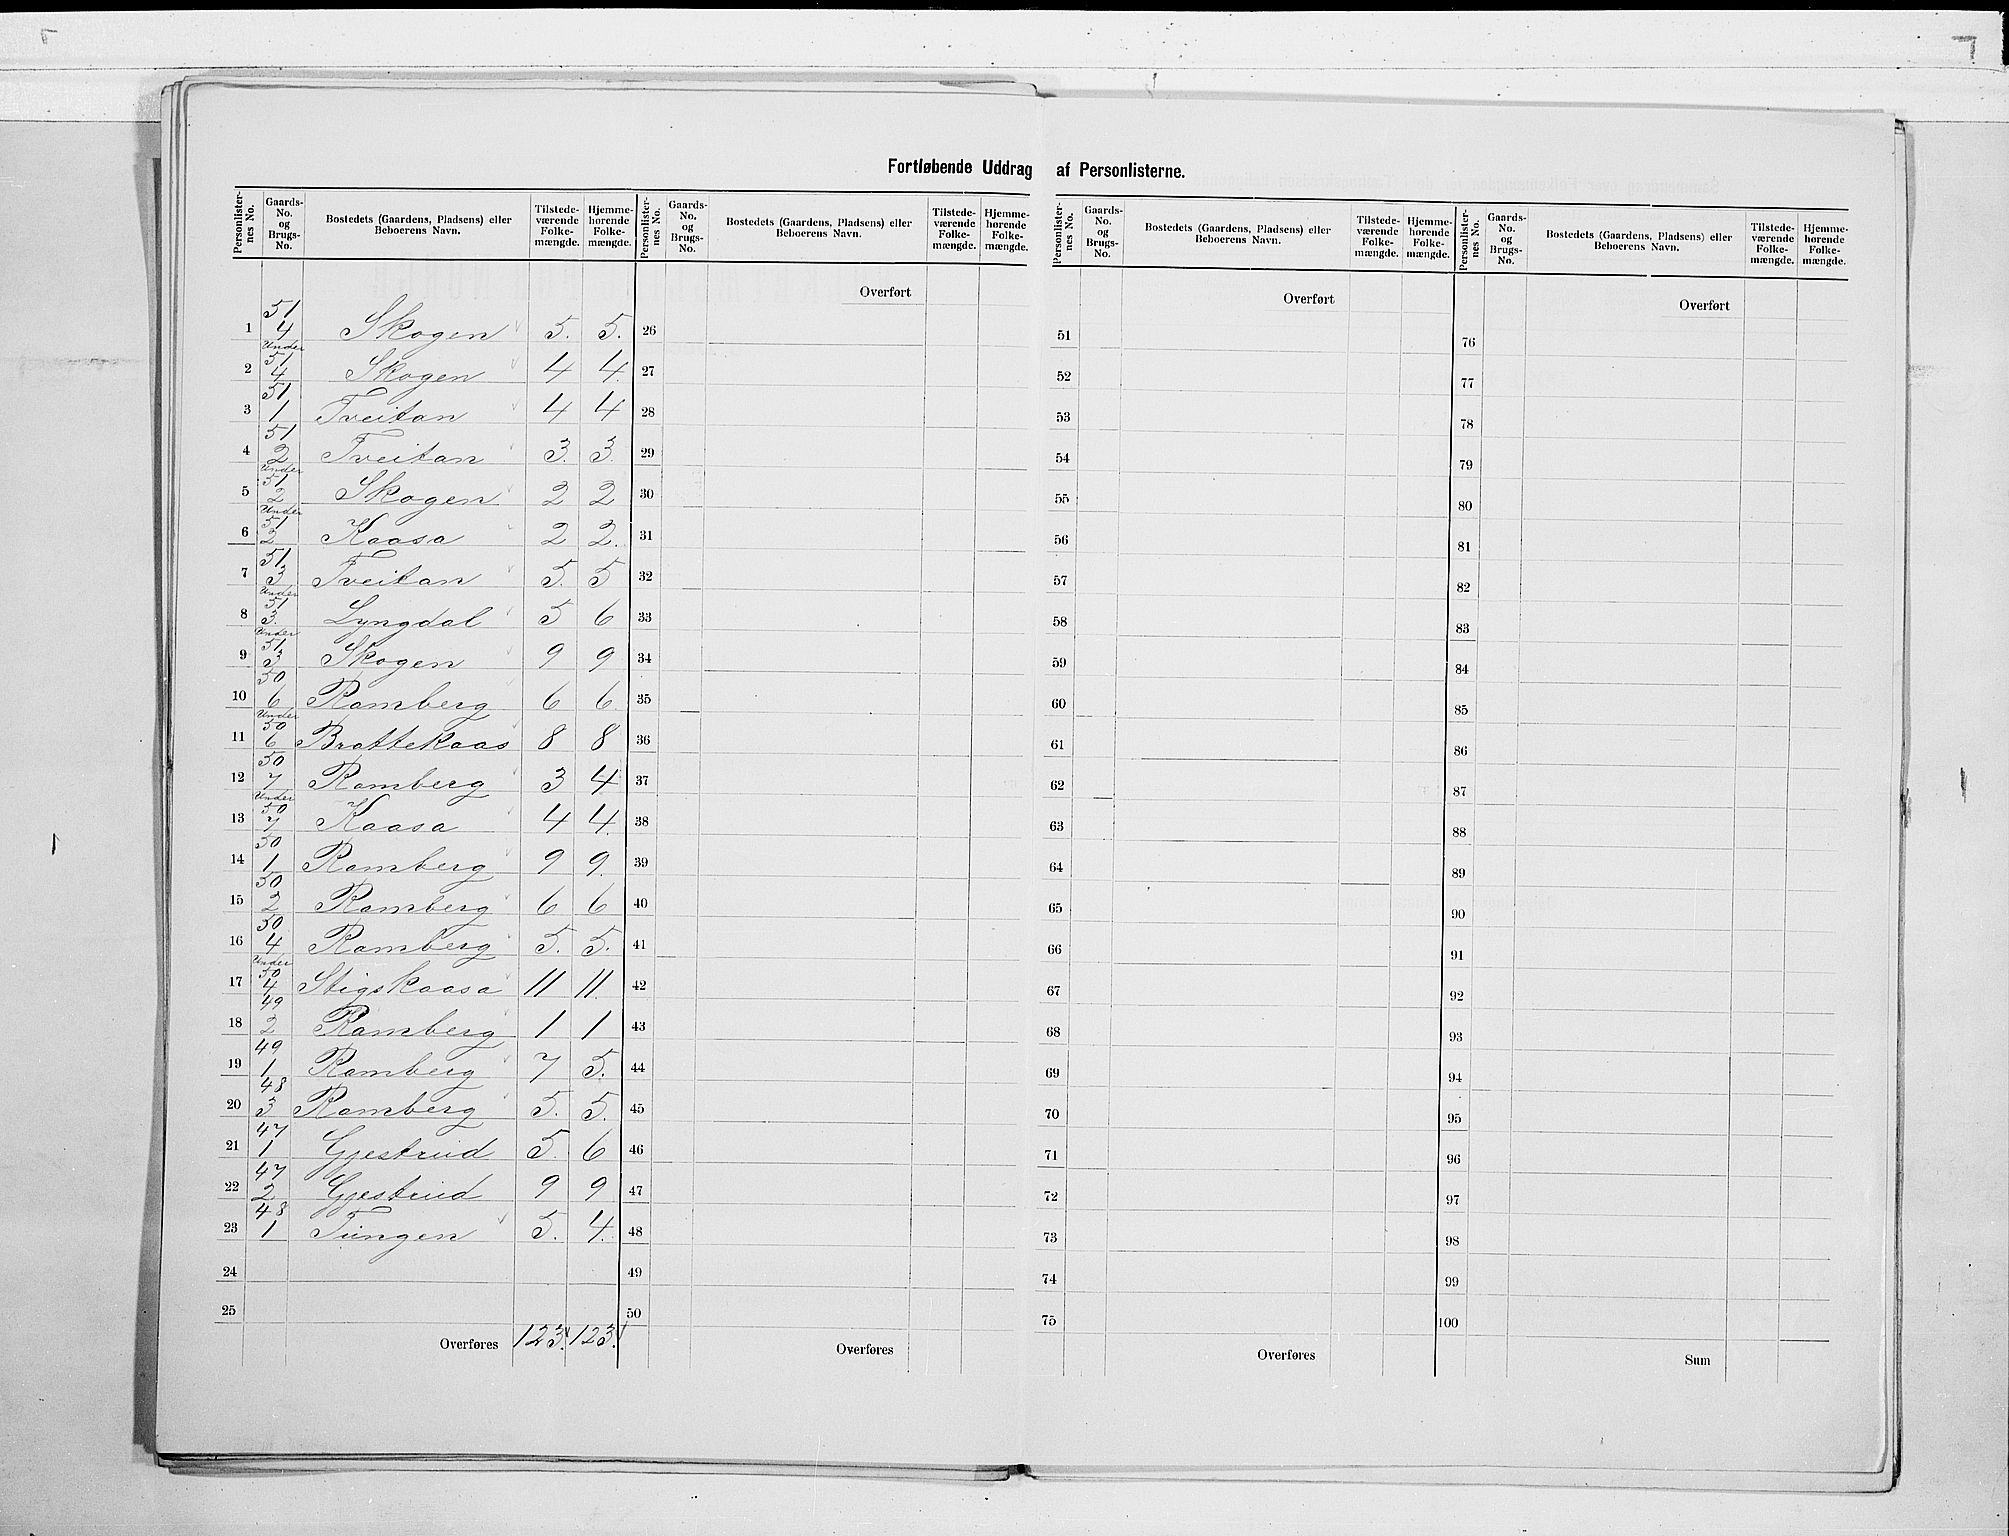 Fortløbende Uddrag af Personlisterne.
Personlisternes No. | Gaards-No. og Brugs-No. | Bostedets (Gaardens, Pladsens) eller Beboerens Navn. | Tilstedeværende Folkemængde. | Hjemmehørende Folkemængde.
Personlisternes No. | Gaards-No. og Brugs-No. | Bostedets (Gaardens, Pladsens) eller Beboerens Navn. | Tilstedeværende Folkemængde. | Hjemmehørende Folkemængde.
Personlisternes No. | Gaards-No. og Brugs-No. | Bostedets (Gaardens, Pladsens) eller Beboerens Navn. | Tilstedeværende Folkemængde. | Hjemmehørende Folkemængde.
Personlisternes No. | Gaards-No. og Brugs-No. | Bostedets (Gaardens, Pladsens) eller Beboerens Navn. | Tilstedeværende Folkemængde. | Hjemmehørende Folkemængde.
Overført Overført Overført
1 51/4 Skogen 5. 5. 26 51 76
2 Under 51/4 Skogen 4 4. 27 52 77
3 51/1 Tveitan 4 4 28 53 78
4 51/2 Tveitan 3. 3. 29 54 79
5 Under 51/2 Skogen 2 2 30 55 80
6 Under 51/2 Kaasa 2 2. 31 56 81
7 51/3 Tveitan 5. 5 32 57 82
8 Under 51/3. Lyngdal 5 6 33 58 83
9 Under 51/3 Skogen 9 9 34 59 84
10 50/6 Ramberg 6 6 35 60 85
11 Under 50/6 Brattekaas 8 8 36 61 86
12 50/7 Ramberg 3 4 37 62 87
13 Under 50/7 Kaasa 4 4. 38 63 88
14 50/1 Ramberg 9 9. 39 64 89
15 50/2 Ramberg 6 6 40 65 90
16 50/4 Ramberg 5. 5. 41 66 91
17 Under 50/4 Stigskaasa 11 11. 42 67 92
18 49/2 Ramberg 1 1 43 68 93
19 49/1 Ramberg 7 5. 44 69 94
20 48/3 Ramberg 5. 5. 45 70 95
21 47/1 Gjestrud 5. 6 46 71 96
22 47/2 Gjestrud 9 9 47 72 97
23 48/1 Tungen 5. 4. 48 73 98
24 49 74 99
25 50 75 100
Overføres 123. 123. Overføres Overføres Sum